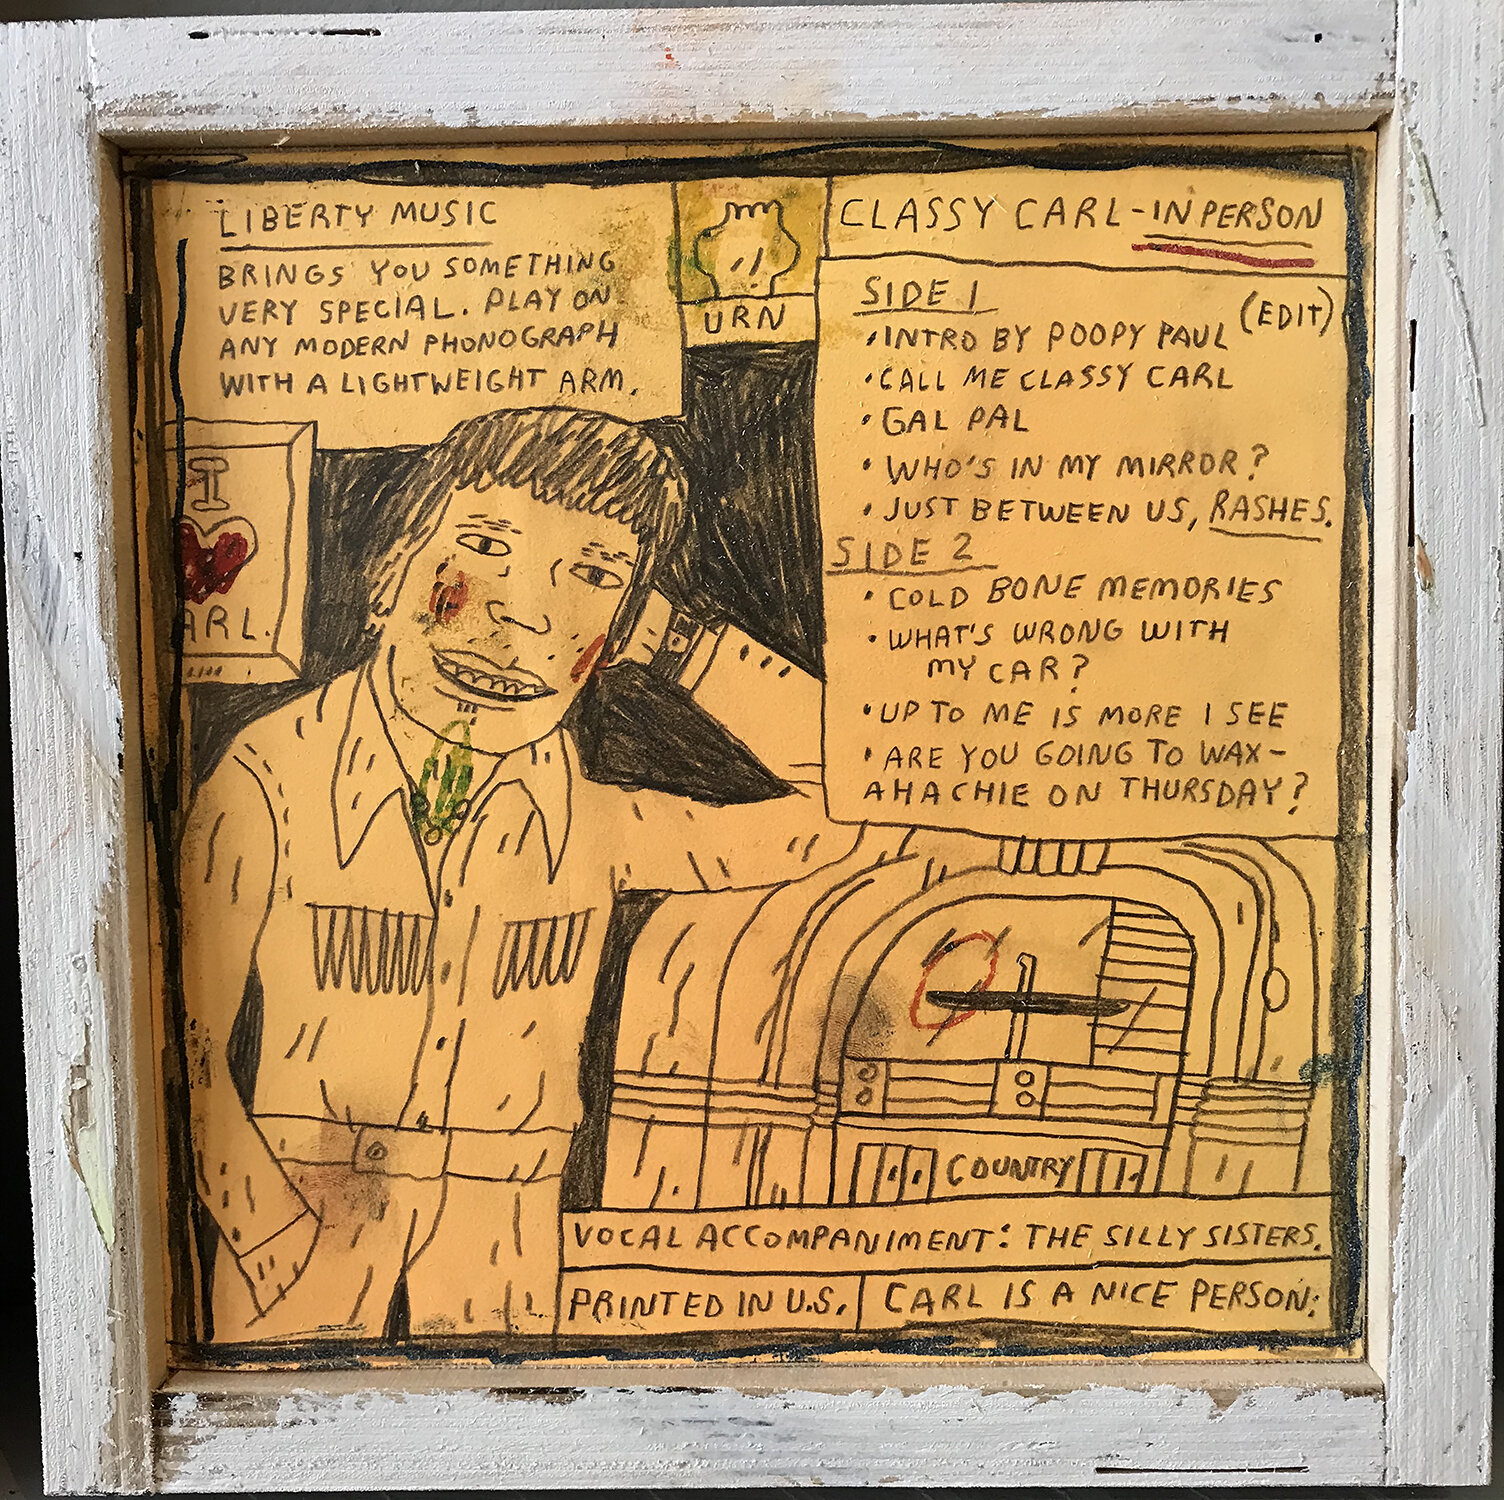 LIBERTY MUSIC
BRINGS YOU SOMETHING
VERY SPECIAL. PLAY ON
ANY MODERN PHONOGRAPH
WITH A LIGHTWEIGHT ARM.
I
ARL.
URN
CLASSY CARL-IN PERSON
SIDE 1
•INTRO BY POOPY PAUL (EDIT)
•CALL ME CLASSY CARL
•GAL PAL
•WHO'S IN MY MIRROR?
•JUST BETWEEN US, RASHES.
SIDE 2
•COLD BONE MEMORIES
•WHAT'S WRONG WITH
MY CAR?
•UP TO ME IS MORE I SEE
•ARE YOU GOING TO WAX-
AHACHIE ON THURSDAY?
COUNTRY
VOCAL ACCOMPANIMENT: THE SILLY SISTERS.
PRINTED IN U.S.
CARL IS A NICE PERSON: